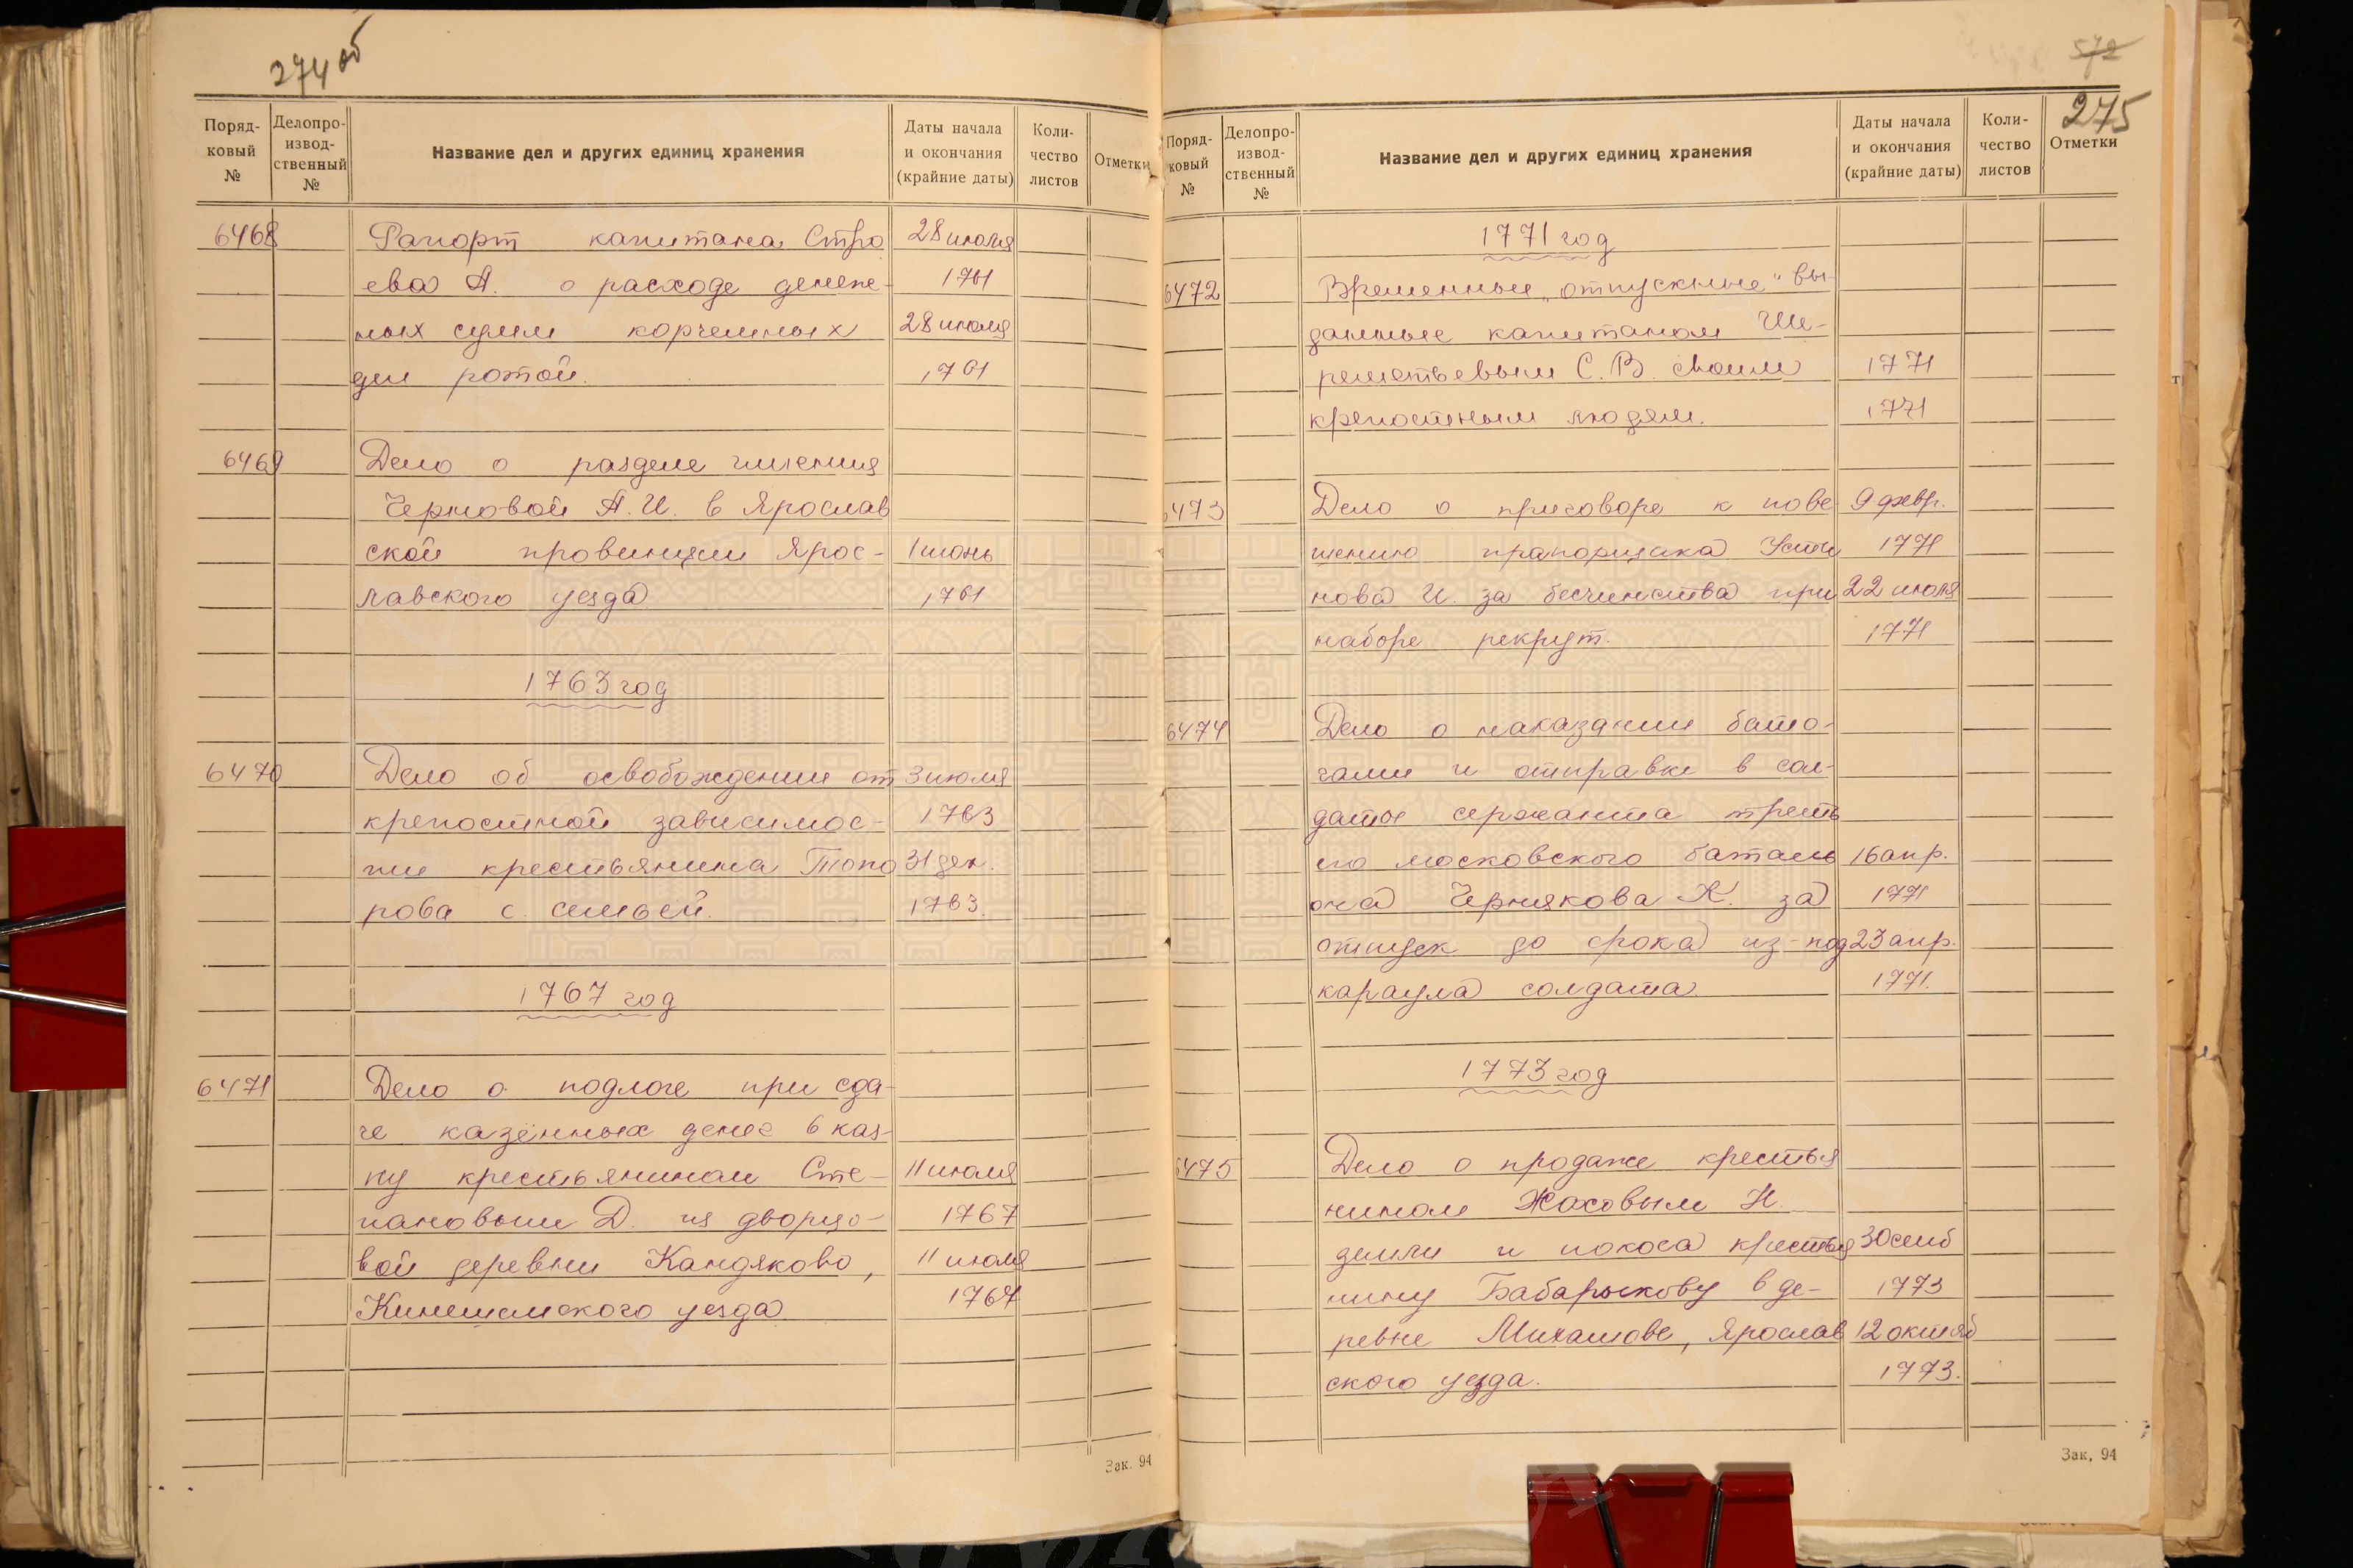 274 об
Поряд-
ковый
№
Делопро-
извод-
ственный
№
Название дел и других единиц хранения
Даты начала
и окончания
(крайние даты)
Коли-
чество
листов
Отметки
6468 Рапорт капитана Стро 28 июля
ева А. о расходе денеж- 1761
ных сумм корчемных 28 июля
дел ротой. 1761
6469 Дело о разделе имения
Черновой А.И. в Ярослав
ской провинции Ярос- 1 июнь
лавского уезда 1761
1763 год
6470 Дело об освобождении от 3 июля
крепостной зависимос- 1763
ти крестьянина Топо 31 дек.
рова с семьей. 1763.
1767 год
6471 Дело о подлоге при сда-
че казённых денег в каз-
ну крестьянином Сте- 11 июля
пановым Д. из дворцо- 1767
вой деревни Кандяково, 11 июля
Кинешемского уезда. 1767
Зак. 94
572
275
Поряд-
ковый
№
Делопро-
извод-
ственный
№
Название дел и других единиц хранения
Даты начала
и окончания
(крайние даты)
Коли-
чество
листов
Отметки
1771 год
6472 Временные „отпускные" вы-
данные капитаном Ше-
реметьевым С.В. своим 1771
крепостным людям. 1771
6473 Дело о приговоре к пове 9 февр.
шению прапорщика Усти 1771
нова И. за бесчинства при 22 июля
наборе рекрут. 1771
6474 Дело о наказании бато-
гами и отправке в сол-
даты сержанта треть
его московского баталь 16 апр.
она Чернякова К. за 1771
отпуск до срока из-под 23 апр.
караула солдата. 1771.
1773 год
6475 Дело о продаже крестья
нином Жоховым Н.
земли и покоса крестья 30 сент
нину Бабарыкову в де- 1773
ревне Михайлове, Ярослав 12 октяб
ского уезда. 1773.
Зак. 94